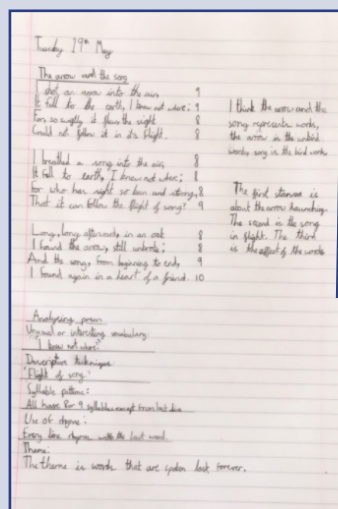 Tuesday 19th May
The arrow and the song
I shot an arrow into the air, 9
It fell to the earth, I knew not where; 9
For, so swiftly it flew, the sight 8
Could not follow it in its flight. 8
I breathed a song into the air, 8
It fell to earth, I knew not where; 8
For who has sight so keen and strong, 8
That it can follow the flight of song? 9
Long, long afterwards, in an oak 8
I found the arrow, still unbroke; 8
And the song, from beginning to end, 9
I found again in a heart of a friend. 10
I think the arrow and the
song represents words,
the arrow is the unkind
words, song is the kind words
The first stanza is
about the arrow launching.
The second is the song
in flight. The third
is the effect of the words
Analysing poem
Unusual or interesting vocabulary:
I knew not where
Descriptive techniques:
'Flight of song'
Syllable patterns:
All have 8 or 9 syllables except from last line
Use of rhyme:
Every line rhymes with the last word.
Theme:
The theme is words that are spoken last forever.